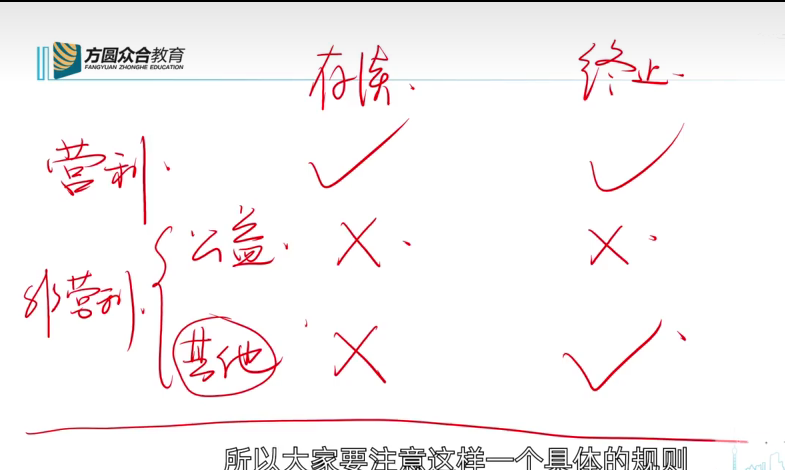 方圆众合教育
FANGYUAN ZHONGHE EDUCATION
存续 终止
营利 ✓ ✓
公益 × ×
非营利
其他 × ✓
所以大家要注意这样一个具体的规则